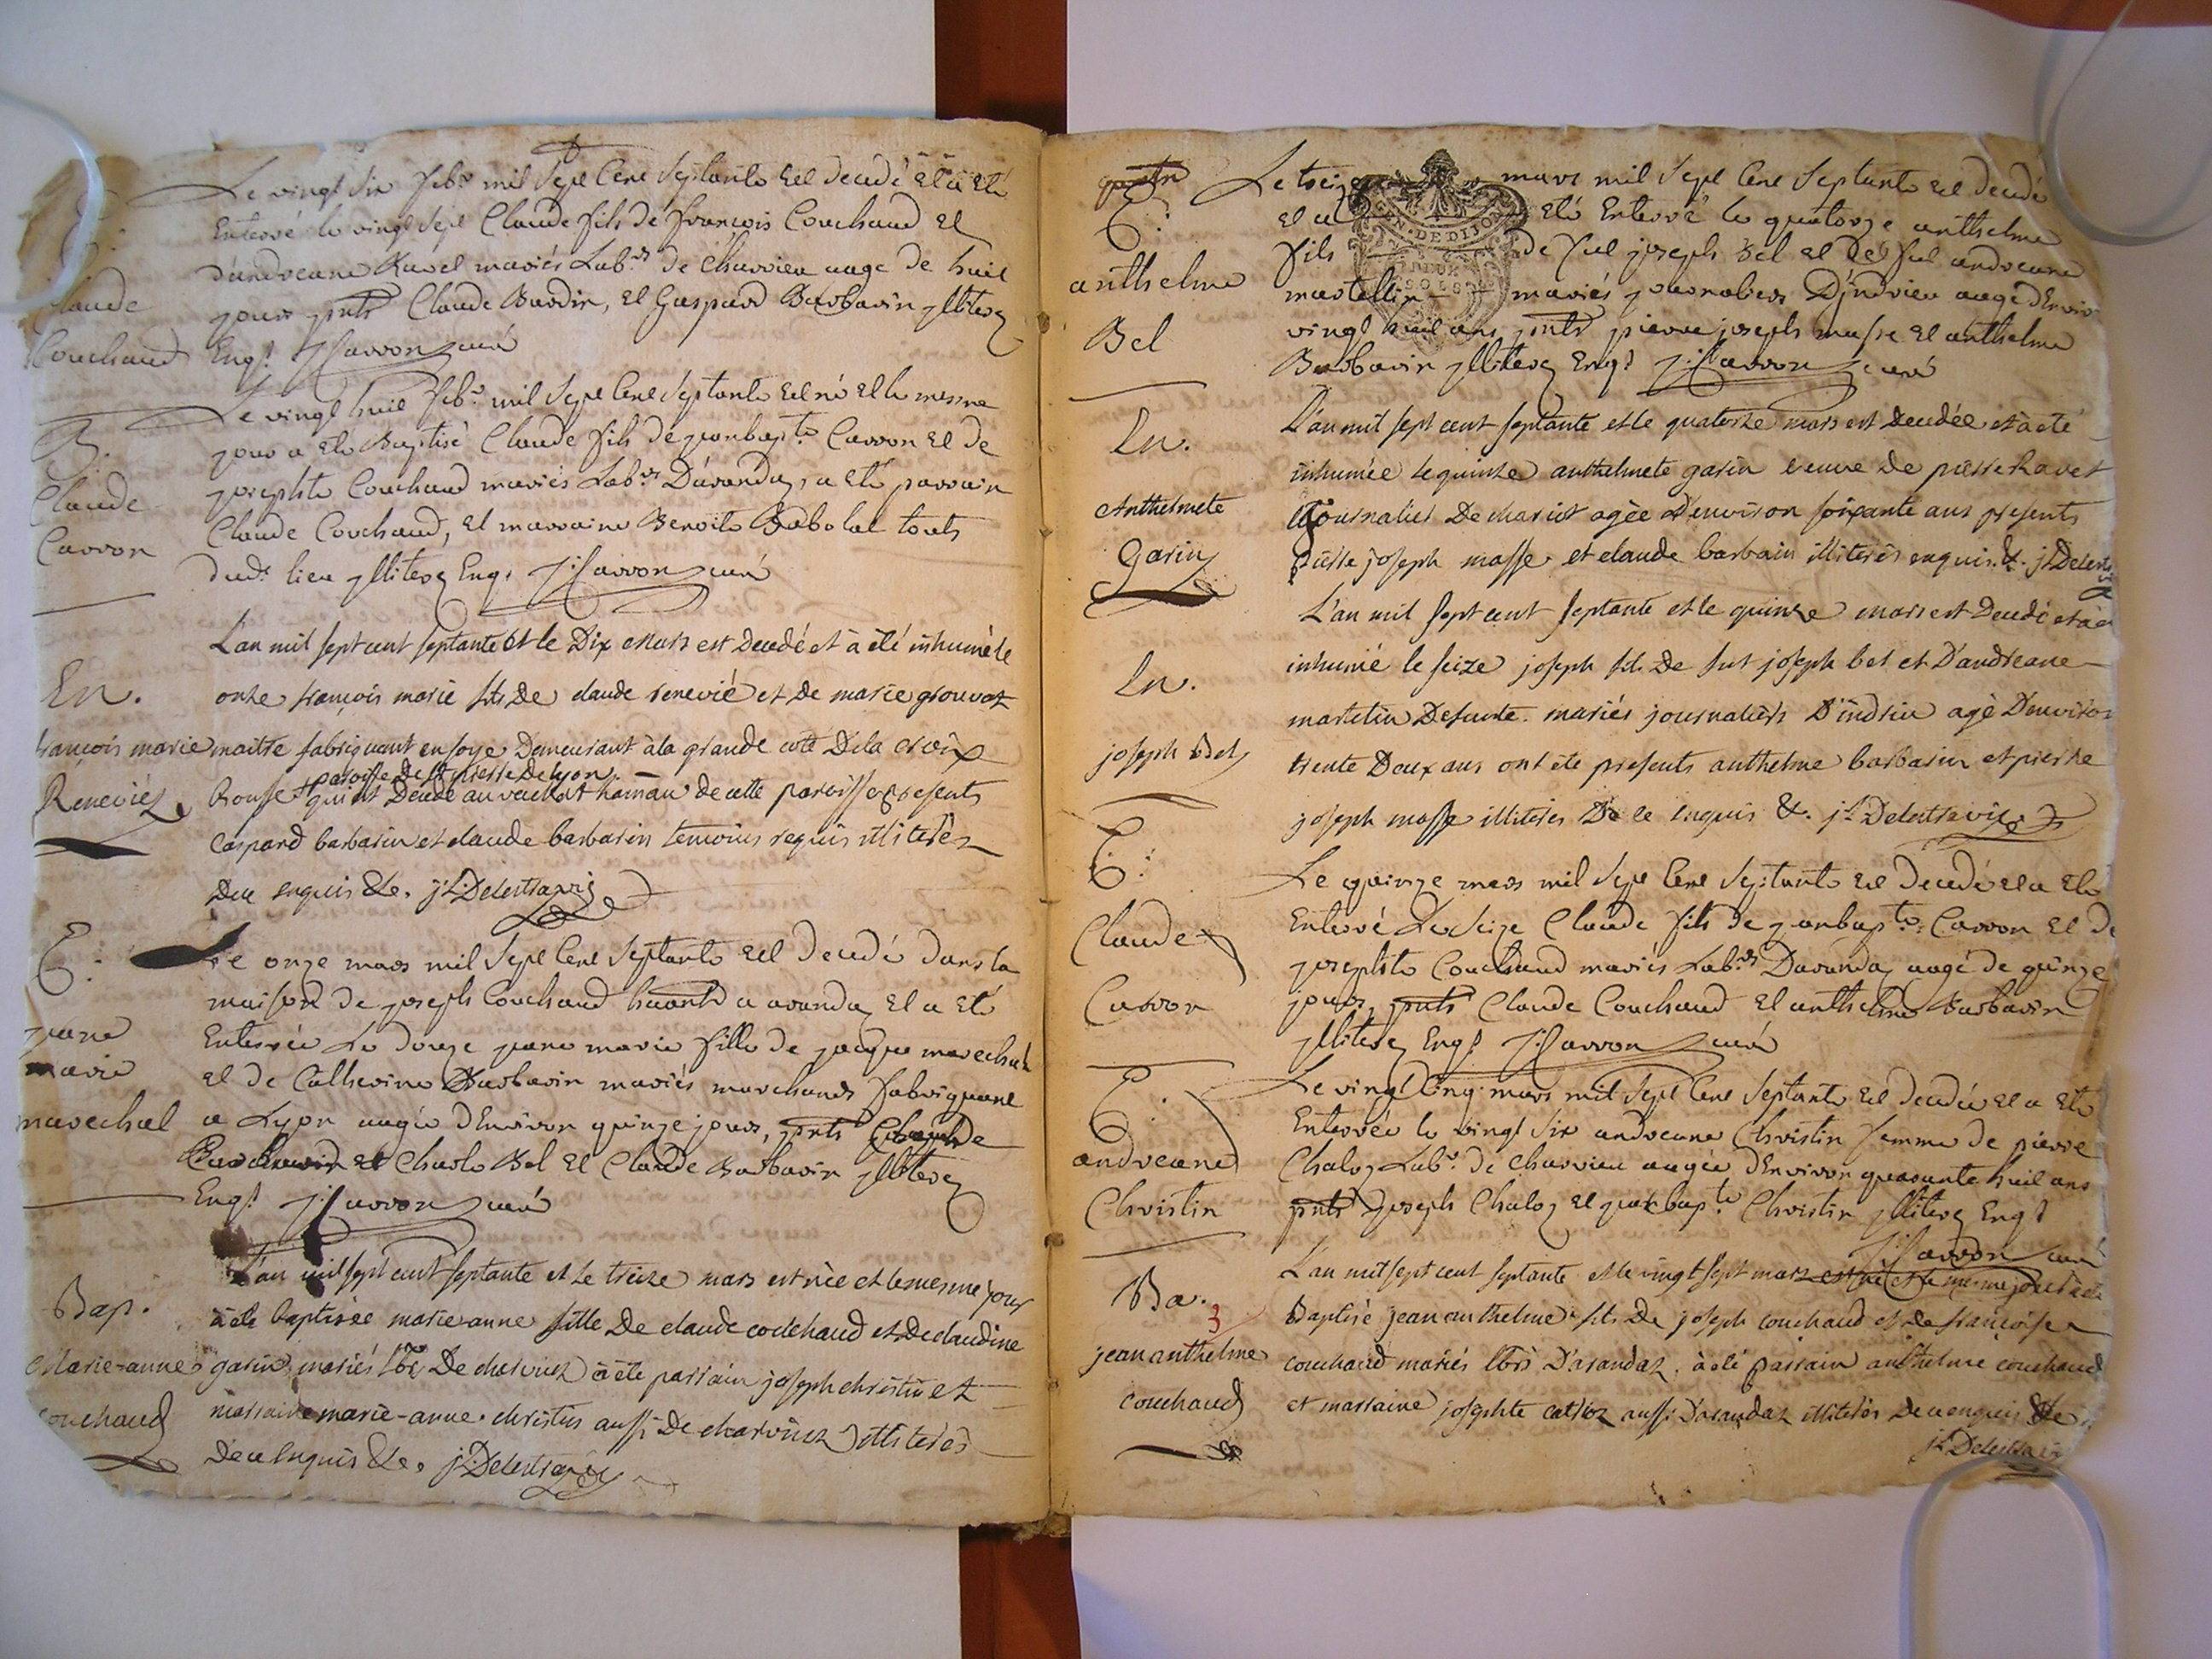 Le vingt six feb.r mil sept cent septante est decedé et a eté
Enterré le vingt sept Claude fils de françois Couchaud et
d'andreane Ravet mariés Lab.rs de Charvieu aagé de huit
jours pnts Claude Bardin, et Gaspard Barbarin jlliterez
Enq.s J: Carron curé
Claude
Couchaud
Le vingt huit feb.r mil sept cent septante est né et le mesme
jour a eté Baptisé Claude fils de jeanbap.te Carron et de
josephte Couchaud mariés Lab.rs D'arandaz, a eté parrain
Claude Couchaud, et marraine Benoite Babolat touts
dud.t lieu jlliterez Enq.s J: Carron curé
B.
Claude
Carron
L'an mil sept cent septante et le Dix mars est Decedé et à été inhumé le
onze françois marie fils De claude renevié et De marie grouvat
maitre fabriquant en soye Demeurant à la grande coté De la croix
paroisse de St pierre De lyon
Rousse qui est Decedé au hamau de cette paroisse presents
Caspard barbarin et claude barbarin temoins requis illiterés
De ce enquis &c. j.L: Delestravis
En.
françois marie
Reneviéz
Le onze mars mil sept cent septante est decedé dans la
maison de joseph Couchaud a arandaz et a eté
Enterrée Le douze jeane marie fille de jacque marechal
et de Catherine Barbarin mariés marchands fabriquant
a Lyon aagée d'Environ quinze jours, pnts
et Charle Bel et Claude Barbarin jlliterez
Enq.s J: Carron curé
E:
jeane
marie
marechal
L'an mil sept cent septante et le treize mars est née et le mesme jour
à été baptisée marie-anne fille De claude couchaud et De claudine
garin mariés lbrs De charvieux à été parrain joseph christin et
marraine marie-anne christin aussi De charvieux illiterés
De ce Enquis &c. j.L: Delestravis
Bap.
Marie-anne
couchaud
Le treize mars mil sept cent septante est decedé
et a Eté Enterré le quatorze anthelme
fils de feu joseph Bel et de feu andreane
martellin mariés journaliers D'jndrieu aagé d'Environ
vingt huit ans pnts pierre joseph masse et anthelme
Barbarin jlliterez Enq.s J: Carron curé
E:
anthelme
Bel
GEN. DE DIJON
DEUX
SOLS
L'an mil sept cent septante et le quatorze mars est Decedée et à eté
inhumée le quinze anthelmete garin veuve De pierre Ravet
journalier De agèe D'environ soixante ans presents
pierre joseph masse et claude barbarin illiterés enquis &. jL Delestravis
En.
Anthelmete
Garin
L'an mil sept cent septante et le quinze mars est Decedé et à eté
inhumé le seize joseph fils De feu joseph bel et D'andreane
martelin Defunte mariés journaliers D'indrieu agé D'environ
trente Deux ans ont été presents anthelme barbarin et pierre
joseph masse illiterés De ce enquis &. j.L Delestravis
En.
joseph Bel
Le quinze mars mil sept cent septante est decedé et a Eté
Enterré Le seize Claude fils de jeanbap.te Carron et de
josephte Couchaud mariés Lab.rs Darandaz aagé de quinze
jours, pnts Claude Couchaud et anthelme Barbarin
jlliterez Enq.s J: Carron curé
E:
Claude
Carron
Le vingt Cinq mars mil sept cent septante est decedée et a Eté
Enterrée le vingt six andreane Christin femme de pierre
Chaloz Lab.r de Charvieu aagée d'Environ quarante huit ans
pnts joseph Chaloz et jeanbap.te Christin jlliterez Enq.s
J: Carron curé
E:
andreane
Christin
L'an mil sept cent septante et le vingt sept mars est né et le meme jour à été
Baptisé jean anthelme fils De joseph couchaud et De françoise
couchaud mariés lbrs D'arandaz. à eté parrain anthelme couchaud
et marraine josephte aussi D'arandaz illiterés De ce enquis &c
j.L Delestravis
Ba.
3
jean anthelme
couchaud